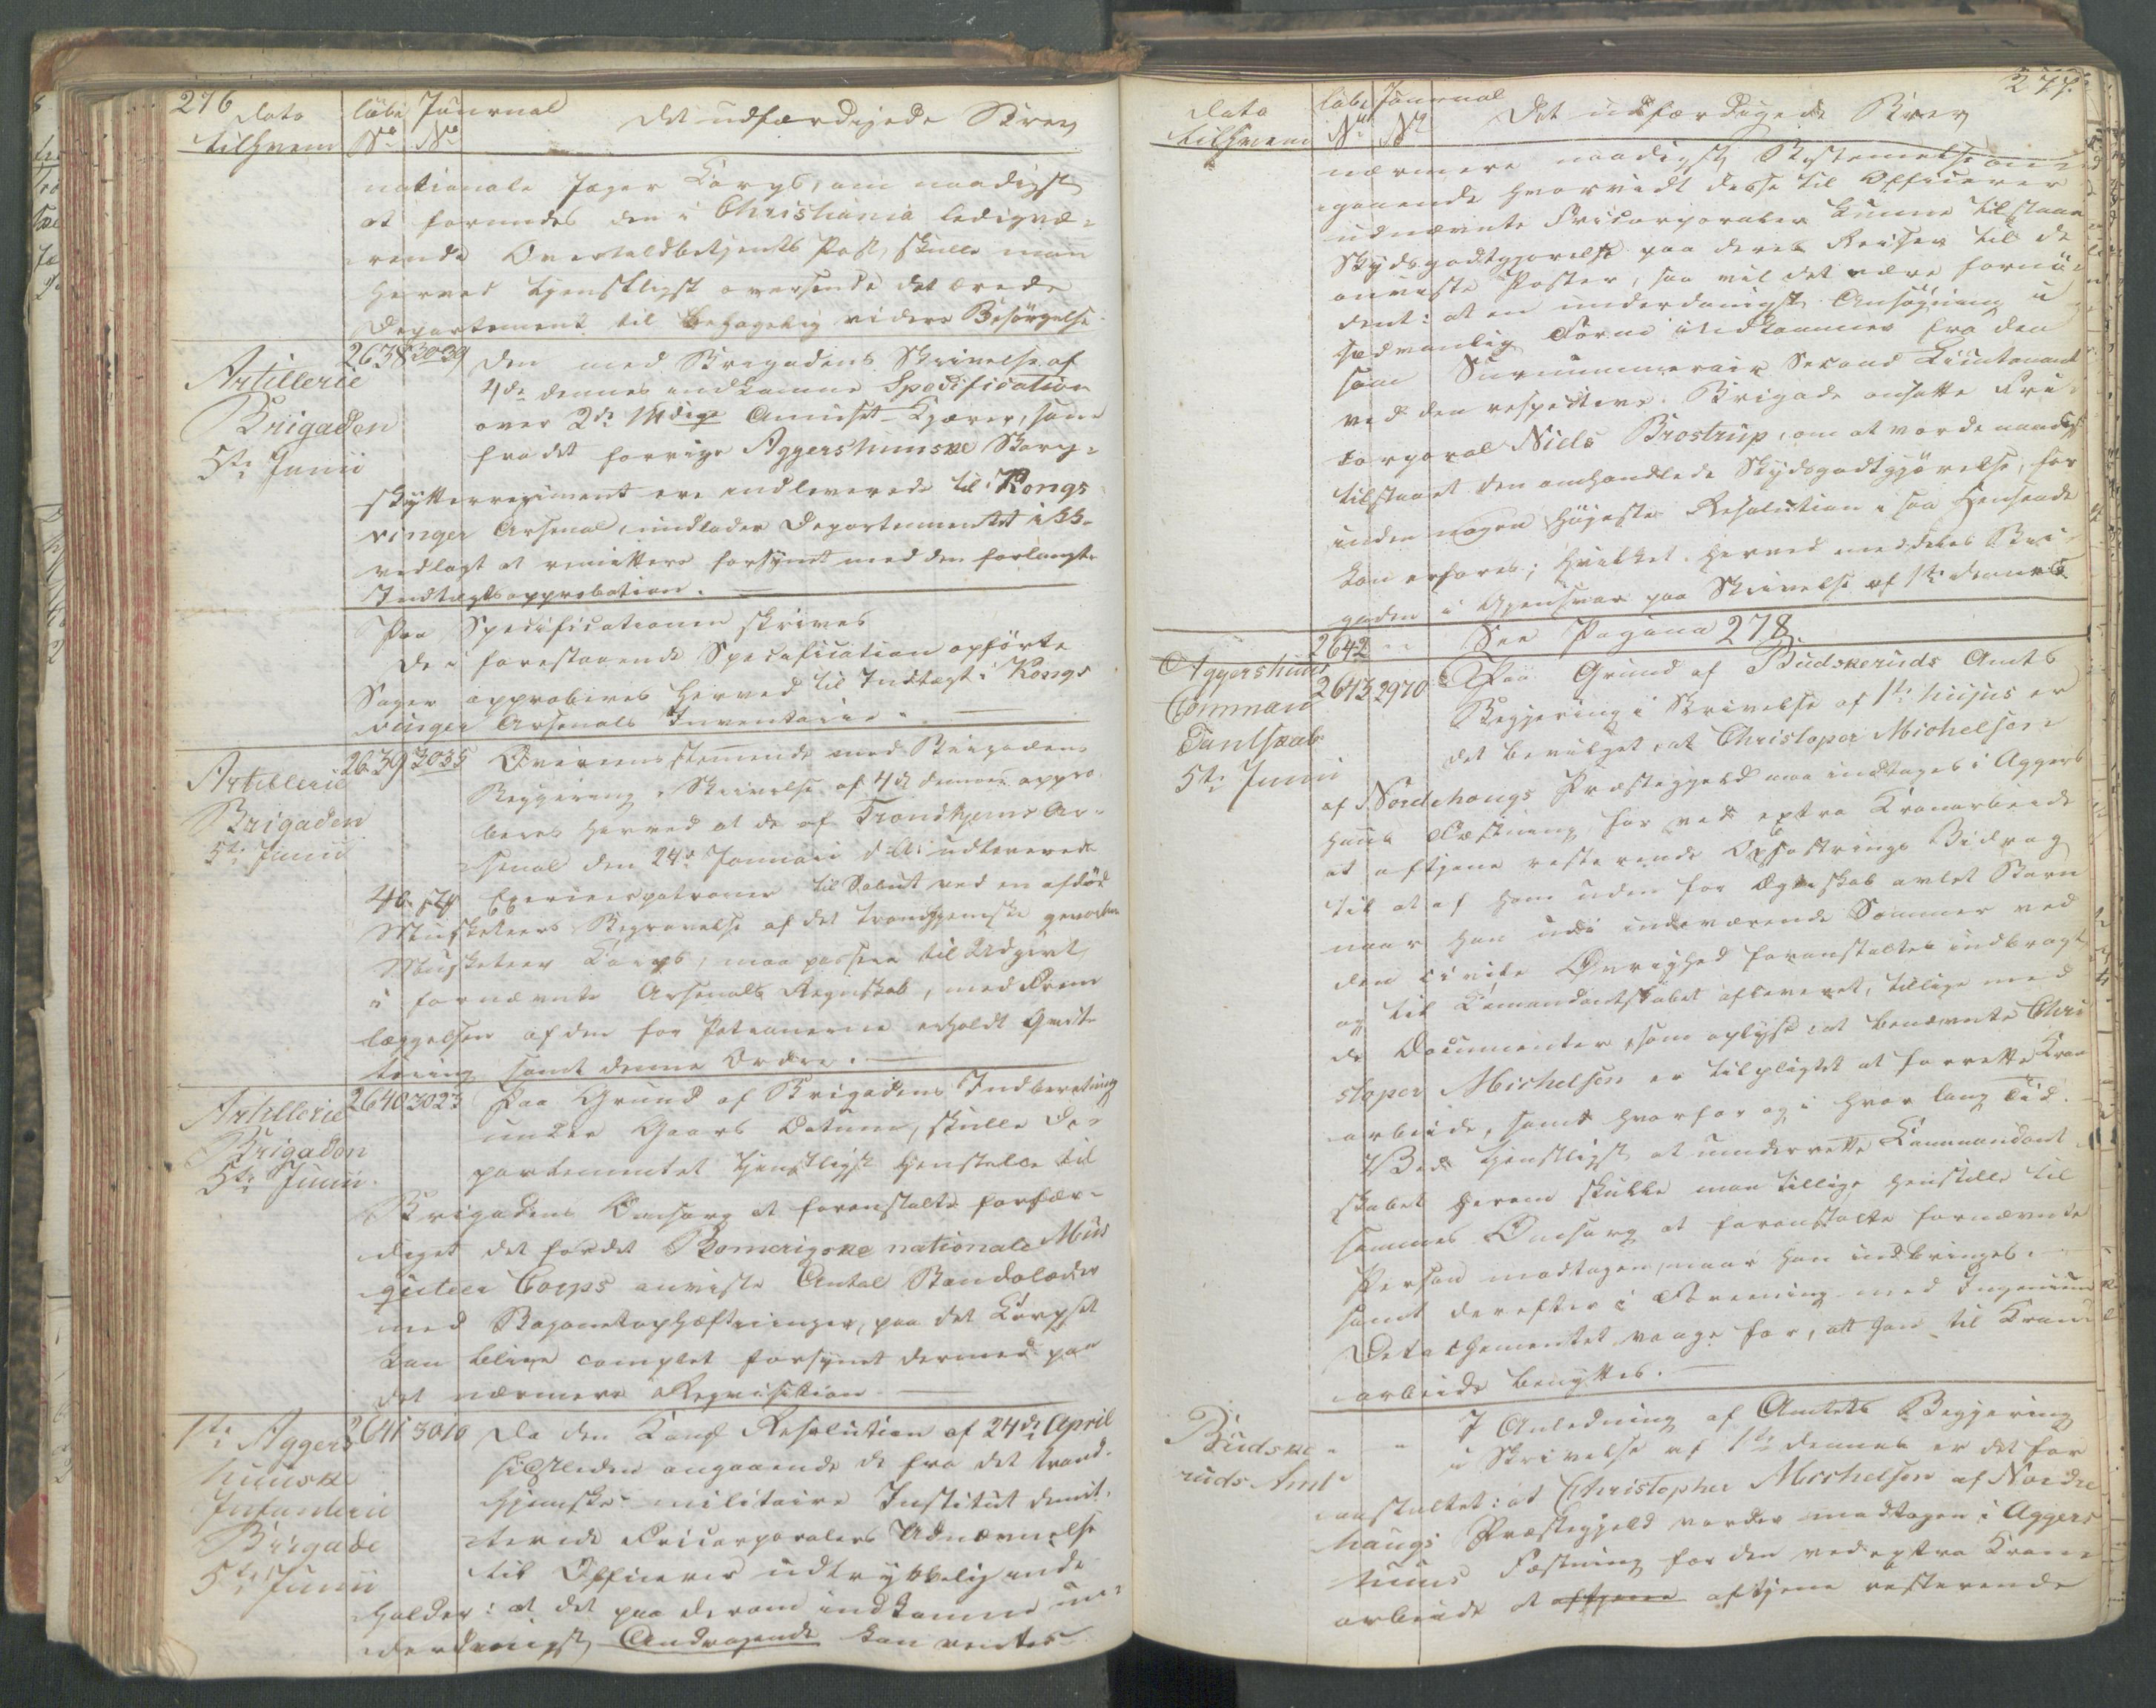 276
Dato
tilhvem
Løbe
No
Journal
No
Det udfærdigede Brev
nationale Jæger Corps, om naadigst
at forundes den i Christiania ledigvæ-
rende Overtoldbetjents Post, skulle man
herved tjenstligst oversende det ærede
Departement til behagelig videre Besørgelse
Artillerie
Brigaden
5te Junii
2638
3039
Den med Brigadens Skrivelse af
4de dennes indkomne Specification
over 2de Amuset Kjærer, som
fra det forrige Aggershuusske Skarp-
skytterregiment ere indleverede til Kongs
vinger Arsenal, undlader Departementet ikke
vedlagt at remittere forsynt med den forlangte
Indtægtsapprobation.
Paa Specificationen skrives
De i forestaaende Specification opførte
Sager approberes herved til Indtægt i Kongs
vinger Arsenals Inventarie.
Artillerie
Brigaden
5te Junii
2639
3035
Overeensstemmende med Brigadens
Begjering i Skrivelse af 4de dennes appro
beres herved at de af Trondhjems Ar-
senal den 24de Januari d. A. udleverede
46 Exerceerpatroner til Salut ved en afdød
Musketeers Begravelse af det trondhjemske gevorbne
Musketeer Corps, maa passere til Udgivt
i fornævnte Arsenals Regnskab, med Frem
læggelsen af den for Patronerne erholdt Qvit-
tering samt denne Ordre.
Artillerie
Brigaden
5te Junii.
2640
3023
Paa Grund af Brigadens Indberetning
under Gaars Datum, skulle De-
partementet tjenstligst henstille til
Brigadens Omsorg at foranstalte forfær-
diget det for det Romerigske nationale Mus
queteer Corps anviste Antal Bandolærer
med Bajonetophæftninger, paa det Corpset
kan blive complet forsynt dermed paa
det nærmere Reqvisition
1te Aggers
huusk
Infanterie
Brigade
5te Junii
2641
3010
Da den Kongl Resolution af 24de April
sidstleden angaaende de fra det trond-
hjemske militaire Institut dimit-
terede Fricorporalers Udnævnelse
til Officerer udtrykkelig inde
holder: at det paa derom indkomne un-
derdanigst Andragende kan ventes
277.
Dato
tilhvem
Løbe
No
Journal
No
Det udfærdigede Brev
nærmere naadigst Bestemmelse an-
gaaende hvorvidt disse til Officerer
udnævnte Fricorporaler kunne tilstaaes
Skydsgodtgjørelse paa deres Reiser til de
anviste Poster, saa vil det være fornø-
dent: at en underdanigst Ansøgning i
sædvanlig Form indkommer fra den
som Surnummerair Second Lieutenant
ved den respective Brigade ansatte Fri
corporal Niels Brostrup, om at vorde naadigst
tilstaaet den omhandlede Skydsgodtgjørelse, før
inden nogen høieste Resolution i saa Henseende
kan erfares; hvilket herved meddeles Bri
gaden i Gjensvar paa Skrivelse af 1te dennes
2642
" "
See Pagina 278
Aggershuus
Comman
dantskab
5te Junii
2643
2970
Paa Grund af Budskeruds Amts
Begjering i Skrivelse af 1te hujus er
det bevilget, at Christopher Michelsen
af Nordrehougs Præstegjeld maa indtages i Aggers
huus Fæstning for ved extra Kronarbeide
at aftjene resterende Opfostrings Bidrag
til at af ham uden for Ægteskab avlet Barn
naar han udi indeværende Sommer ved
den civile Øvrighed foranstaltes indbragt
og til Commandantskabet afleveret, tillige med
de Documenter, som oplyse at benævnte Chri
stopher Michelsen er tilpligtet at forrette Kron
arbeide, samt hvorfor og i hvor lang Tid.
Ved tjenstligst at underrette Commandant
skabet herom skulle man tillige henstille til
sammes Omsorg at foranstalte fornævnte
Person modtagen, naar han indbringes,
samt derefter i Forening med Ingenieur
Detachementet vaage for, at han til Kron
arbeide benyttes.
Budske
ruds Amt
" "
I Anledning af Amtets Begjering
i Skrivelse af 1te dennes er det for
anstaltet: at Christopher Michelsen af Nordre
haugs Præstegjeld vorder modtagen i Aggers
huus Fæstning for den ved extra Kron-
arbeide at aftjene aftjene resterende